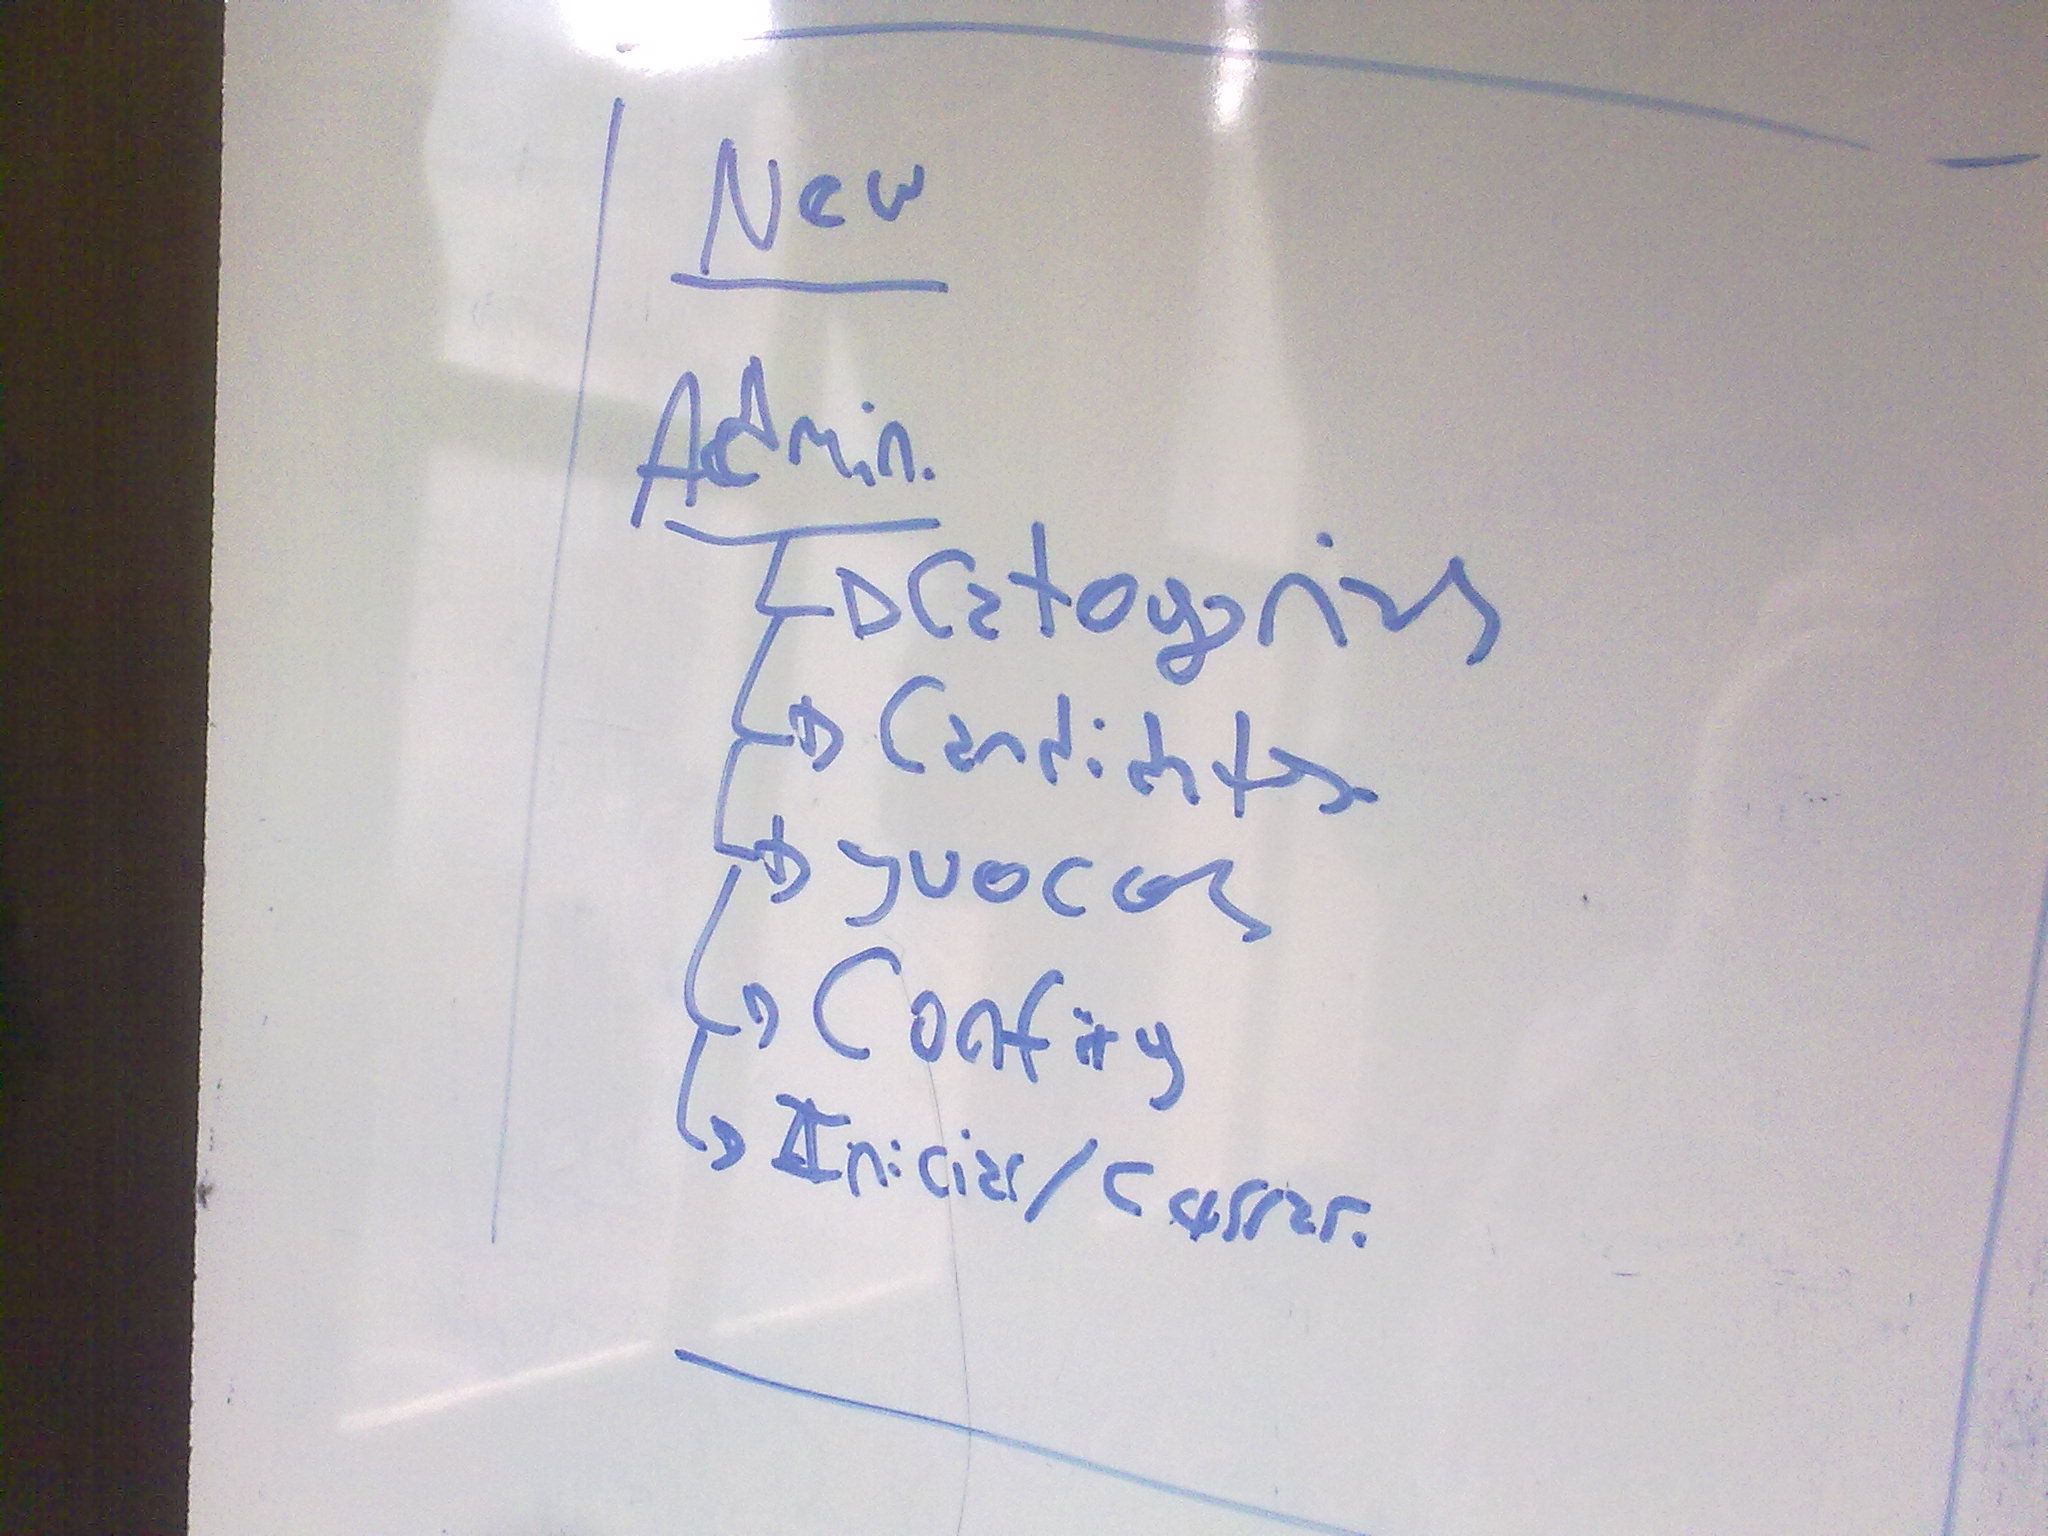 New
Admin.
Catogorias
Candidatos
Config
Iniciar/Cerrar.